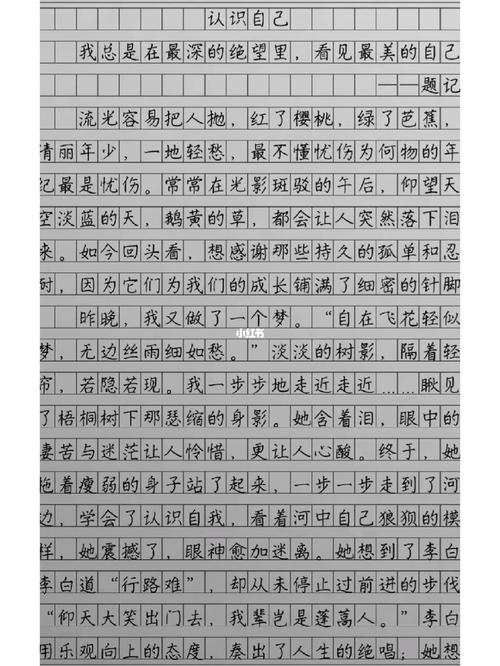 认识自己
我总是在最深的绝望里，看见最美的自己
——题记
流光容易把人抛，红了樱桃，绿了芭蕉，
清丽年少，一地轻愁，最不懂忧伤为何物的年
纪最是忧伤。常常在光影斑驳的午后，仰望天
空淡蓝的天，鹅黄的草，都会让人突然落下泪
来。如今回头看，想感谢那些持久的孤单和忍
耐，因为它们为我们的成长铺满了细密的针脚
昨晚，我又做了一个梦。“自在飞花轻似
小红书
梦，无边丝雨细如愁。”淡淡的树影，隔着轻
帘，若隐若现。我一步步地走近走近……瞅见
了梧桐树下那瑟缩的身影。她含着泪，眼中的
凄苦与迷茫让人怜惜，更让人心酸。终于，她
拖着瘦弱的身子站了起来，一步一步走到了河
边，学会了认识自我，看着河中自己狼狈的模
样，她震撼了，眼神愈加迷离。她想到了李白
李白道“行路难”，却从未停止过前进的步伐
“仰天大笑出门去，我辈岂是蓬蒿人。”李白
用乐观向上的态度，奏出了人生的绝唱；她想